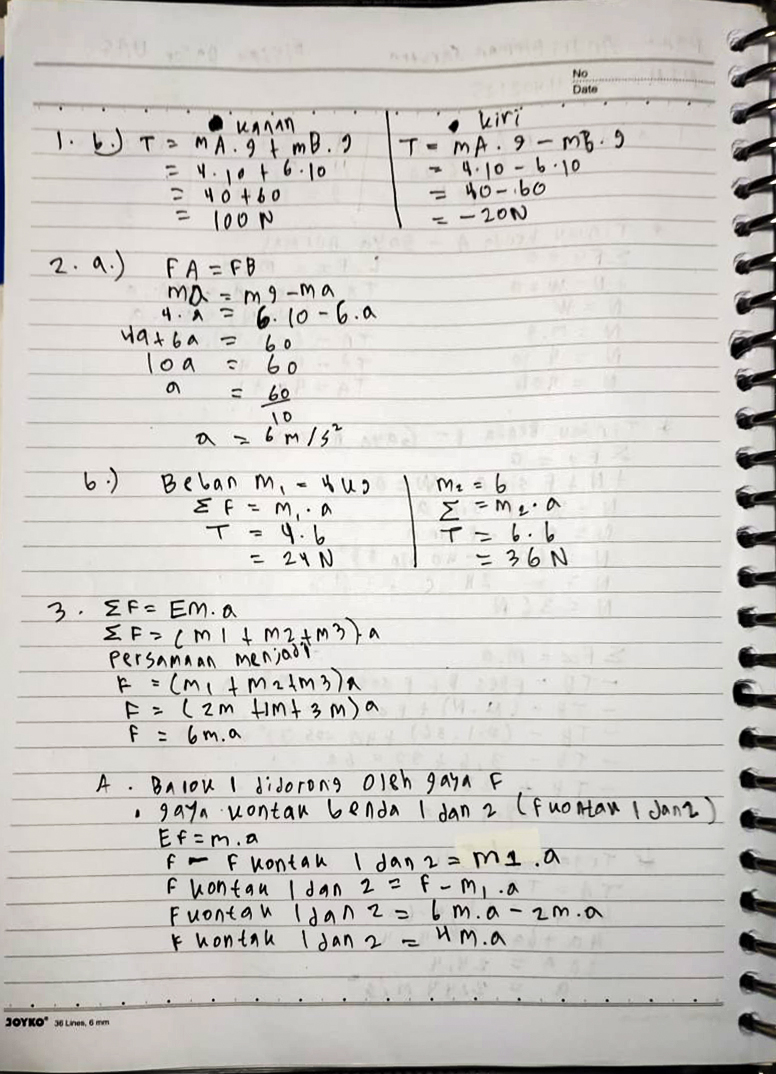 No
Date
1. b.) kanan
T = mA . g + mB . g
= 4.10 + 6.10
= 40 + 60
= 100 N
• kiri
T = mA . g - mB . g
= 4.10 - 6.10
= 40 - 60
= -20N
2. a.) FA = FB
ma = mg - ma
4.a = 6.10 - 6.a
4a + 6a = 60
10a = 60
a = 60
10
a = 6 m/s²
b.) Beban m₁ = 4 kg
Σ F = m₁ . a
T = 4.6
= 24 N
m₂ = 6
Σ = m₂ . a
T = 6.6
= 36 N
3. ΣF = EM.a
ΣF = (m1 + m2 + m3) . a
Persamaan menjadi
F = (m₁ + m₂ + m3) a
F = (2m + 1m + 3m) a
F = 6m.a
A. Balok 1 didorong oleh gaya F
• gaya kontak benda 1 dan 2 (F kontak 1 dan 2)
EF = m.a
F - F kontak 1 dan 2 = m1 . a
F kontak 1 dan 2 = F - m₁ . a
F kontak 1 dan 2 = 6 m.a - 2m.a
F kontak 1 dan 2 = 4 m.a
JOYKO® 36 Lines, 6 mm